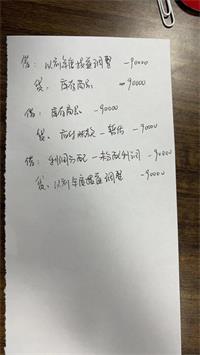 借：以前年度损益调整 -90000
贷：库存商品 -90000
借：库存商品 -90000
贷：应付账款-暂估 -90000
借：利润分配-未分配利润 -90000
贷：以前年度损益调整 -90000